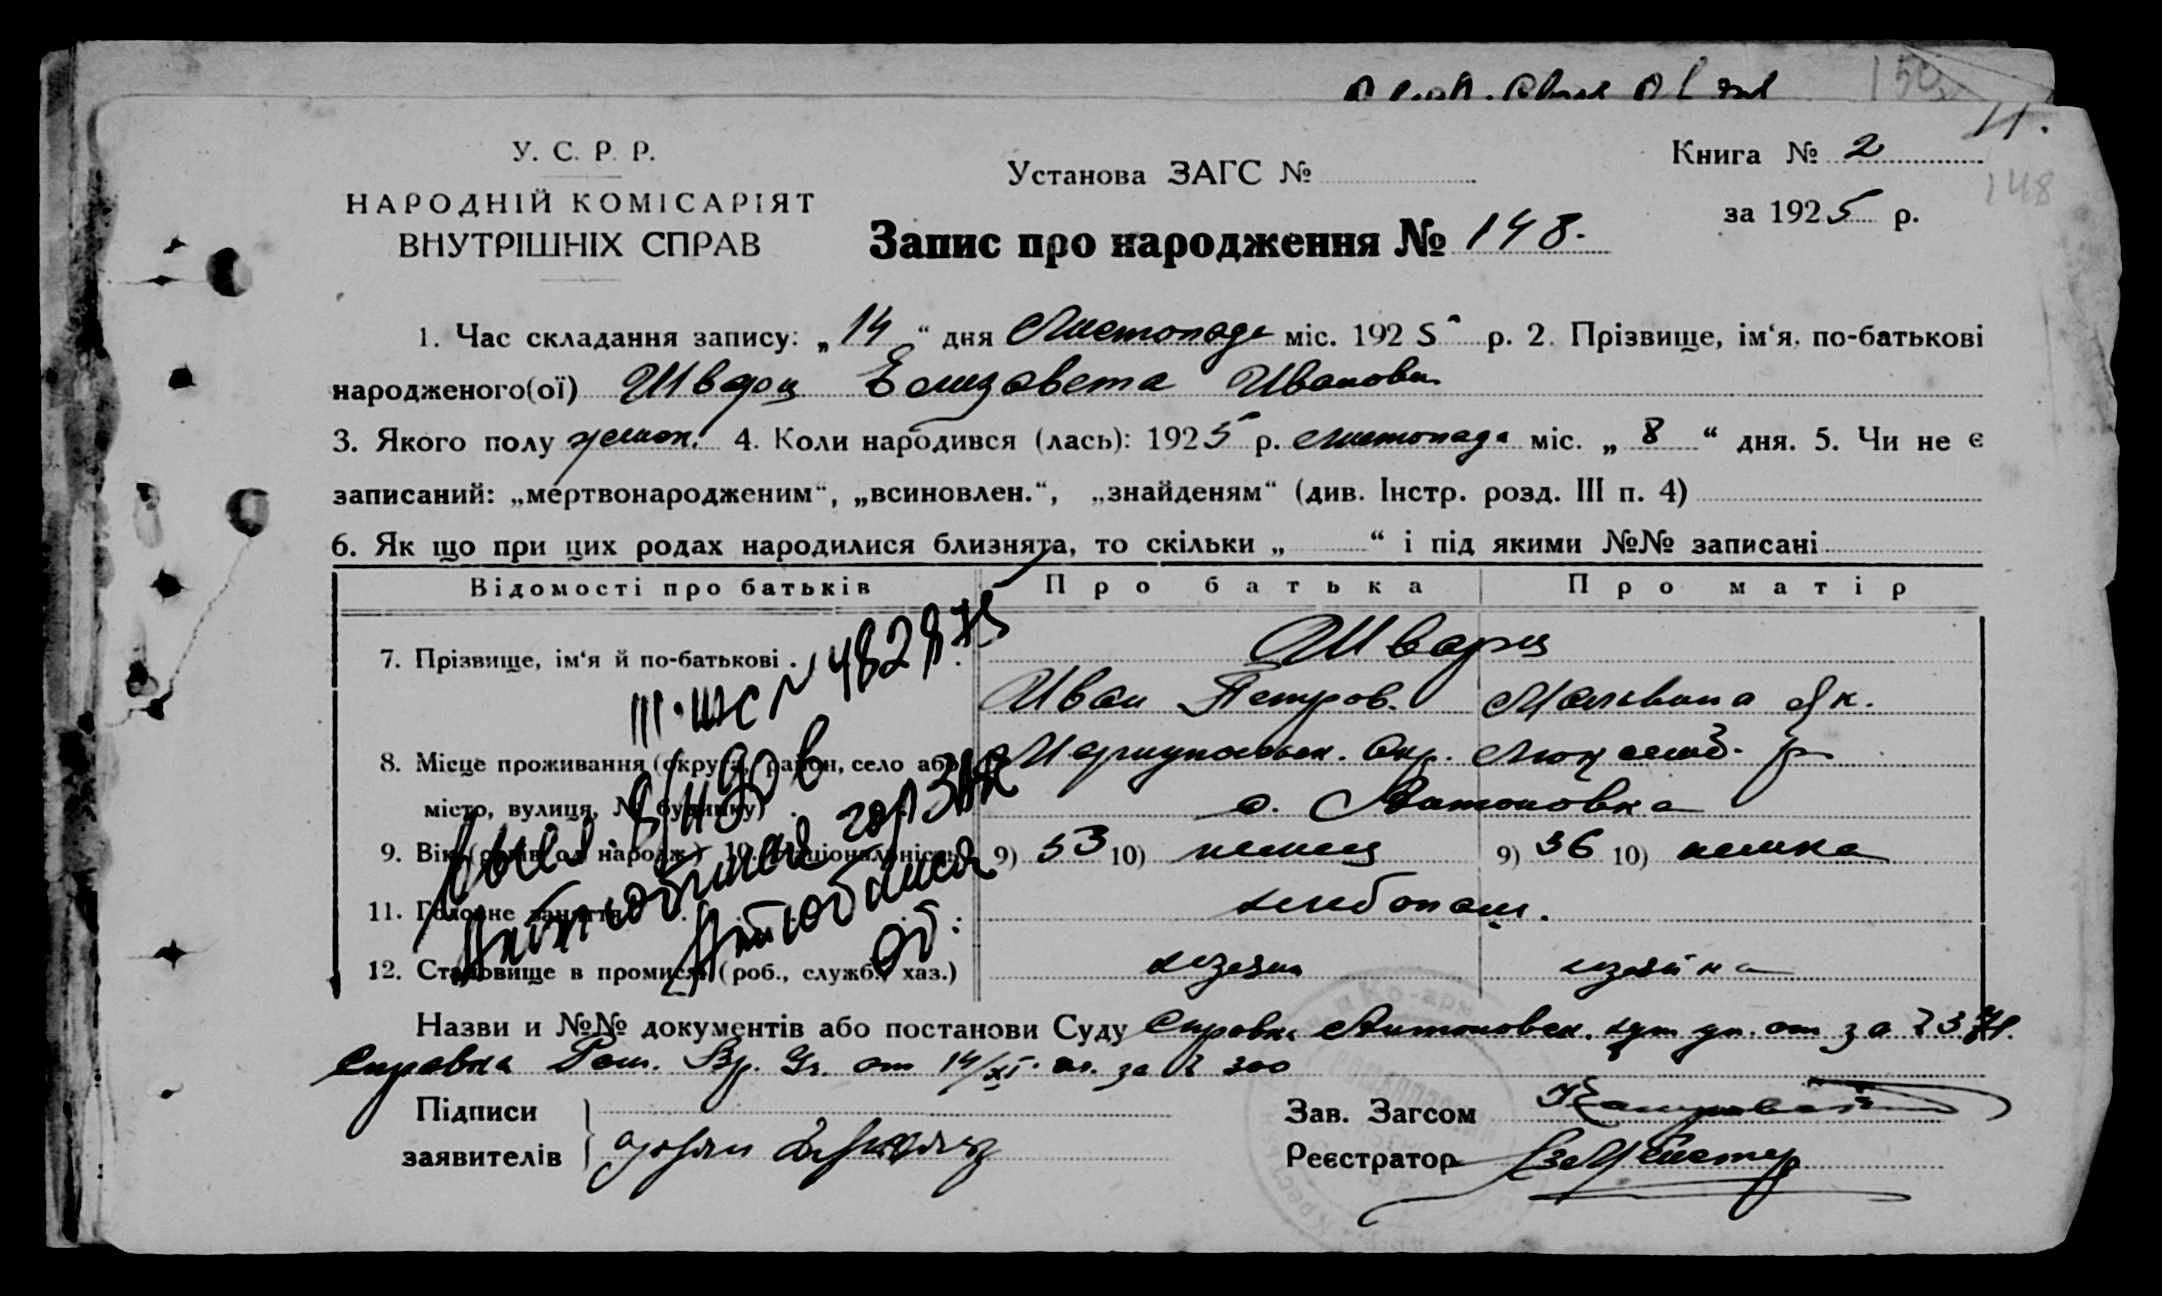 150
11.
У. С. Р. Р.
НАРОДНІЙ КОМІСАРІЯТ
ВНУТРІШНІХ СПРАВ
Установа ЗАГС №
Книга № 2
148
за 1925 р.
Запис про народження № 148.
1. Час складання запису: „14“ дня Листопада міс. 1925 р. 2. Прізвище, ім‘я, по-батькові
народженого(ої) Шварц Елизавета Иванови
3. Якого полу женск. 4. Коли народився (лась): 1925 р. листопада міс. „8“ дня. 5. Чи не є
записаний: „мертвонародженим“, „всиновлен.“, „знайденям“ (див. Інстр. розд. III п. 4)
6. Як що при цих родах народилися близнята, то скільки „ “ і під якими №№ записані
Відомості про батьків Про батька Про матір
7. Прізвище, ім‘я й по-батькові Шварц
Иван Петров. Мальвина Як.
8. Місце проживання (округа, район, село або Мариупольск. Окр. Люксемб. р
місто, вулиця, № будинку) с. Антоновка
9. Вік (років од народж.) 10. Національність 9) 53 10) немец 9) 36 10) немка
11. Головне заняття хлебопаш.
12. Становище в промислі (роб., служб., хаз.) хозяин хозяйка
III-ШС № 482875
выд. 9/II 90 в
Актюбинск гор ЗАГС
Актюбинск
об.
Назви и №№ документів або постанови Суду Справка Антоновск. от за № 237
Справка от 14/XI. за № 300
Підписи
заявителів
Зав. Загсом
Реєстратор